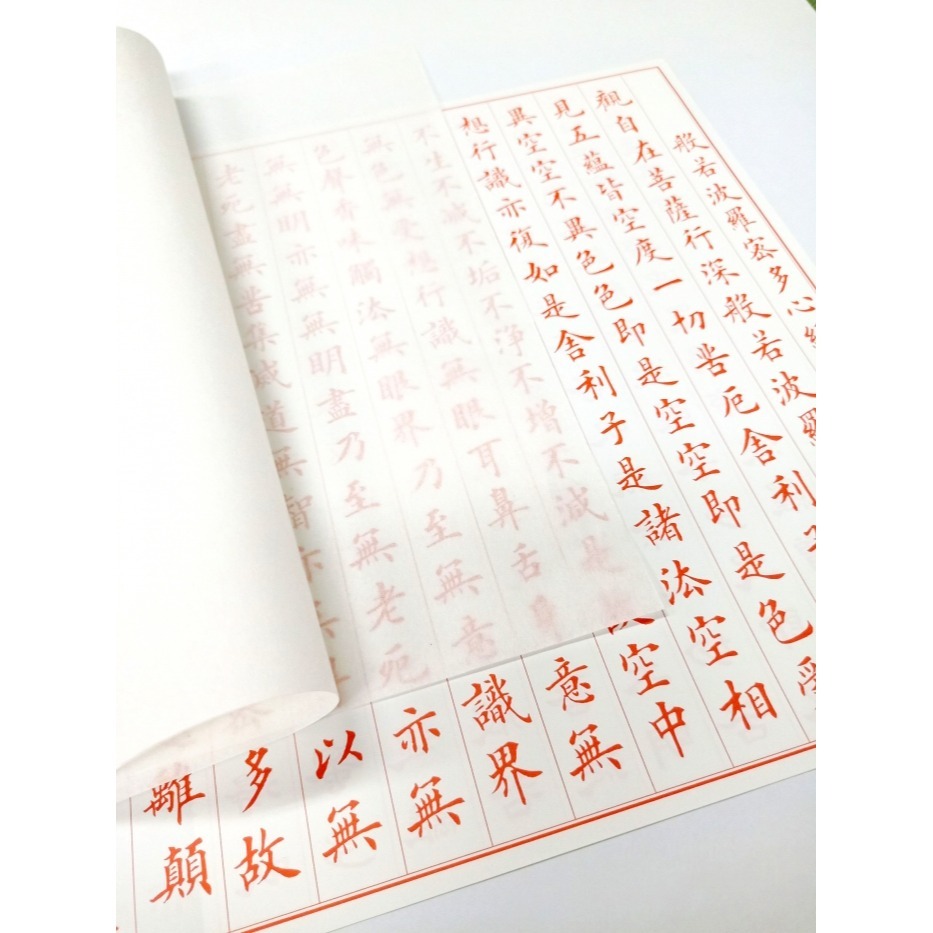 般若波羅密多心
觀自在菩薩行深般若波羅
見五蘊皆空度一切苦厄舍利子
異空空不異色色即是空空即是色受
想行識亦復如是舍利子是諸法空相
不生不滅不垢不淨不增不減是故空中
無色無受想行識無眼耳鼻舌身意無
色聲香味觸法無眼界乃至無意識界
無無明亦無無明盡乃至無老死亦無
老死盡無苦集滅道無智亦無以無
多故
離顛